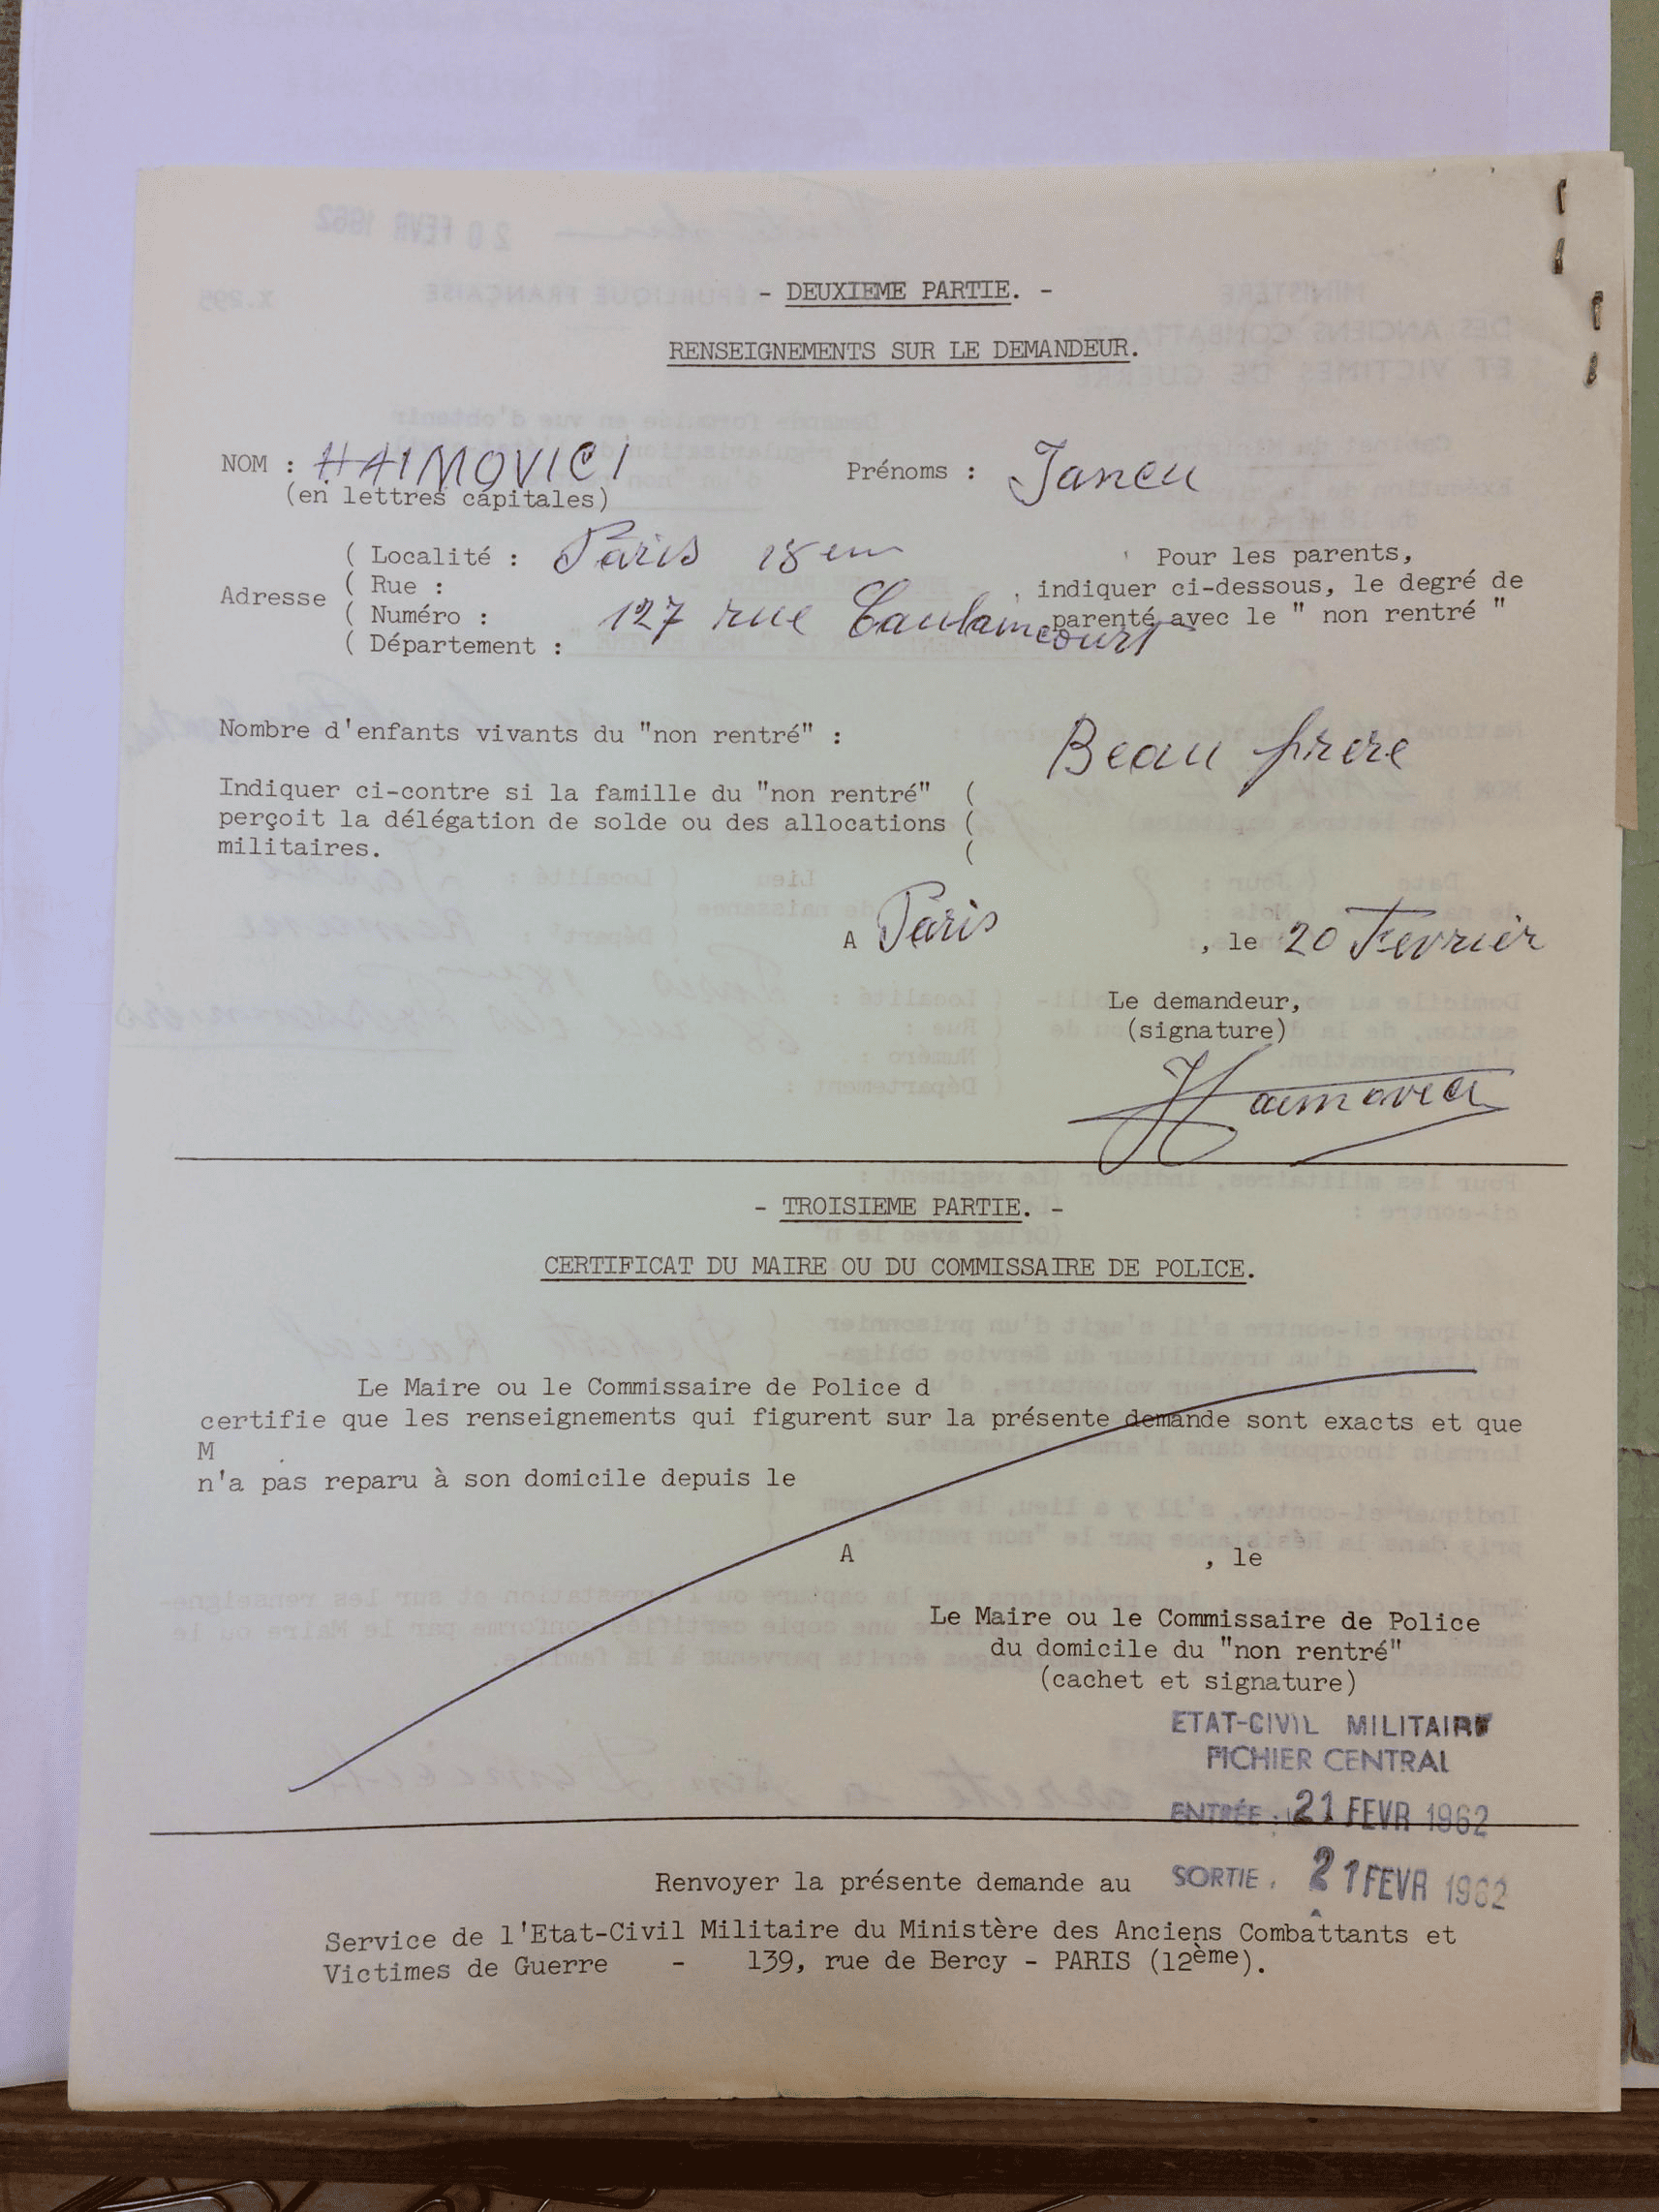 - DEUXIEME PARTIE. -
RENSEIGNEMENTS SUR LE DEMANDEUR.
NOM : HAIMOVICI Prénoms : Jancu
(en lettres capitales)
( Localité : Paris 18 em
Adresse ( Rue :
( Numéro : 127 rue Caulaincourt
( Département :
Pour les parents,
indiquer ci-dessous, le degré de
parenté avec le " non rentré "
Nombre d'enfants vivants du "non rentré" : Beau frere
Indiquer ci-contre si la famille du "non rentré" (
perçoit la délégation de solde ou des allocations (
militaires. (
A Paris , le 20 Fevrier
Le demandeur,
(signature)
Haimovici
- TROISIEME PARTIE. -
CERTIFICAT DU MAIRE OU DU COMMISSAIRE DE POLICE.
Le Maire ou le Commissaire de Police d
certifie que les renseignements qui figurent sur la présente demande sont exacts et que
M
n'a pas reparu à son domicile depuis le
A , le
Le Maire ou le Commissaire de Police
du domicile du "non rentré"
(cachet et signature)
ETAT-CIVIL MILITAIRE
FICHIER CENTRAL
ENTRÉE : 21 FEVR 1962
Renvoyer la présente demande au SORTIE . 21 FEVR 1962
Service de l'Etat-Civil Militaire du Ministère des Anciens Combattants et
Victimes de Guerre - 139, rue de Bercy - PARIS (12ème).